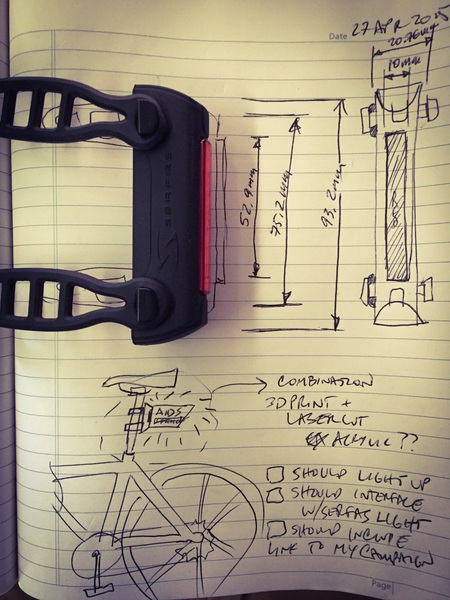 Date 27 APR 2015
20.76mm
10mm
52.9mm
75.2mm
93.2mm
AIDS
COMBINATION
3D PRINT +
LASERCUT
ACRYLIC ??
SHOULD LIGHT UP
SHOULD INTERFACE
W/SERFAS LIGHT
SHOULD INCLUDE
LINK TO MY CAMPAIGN
Page